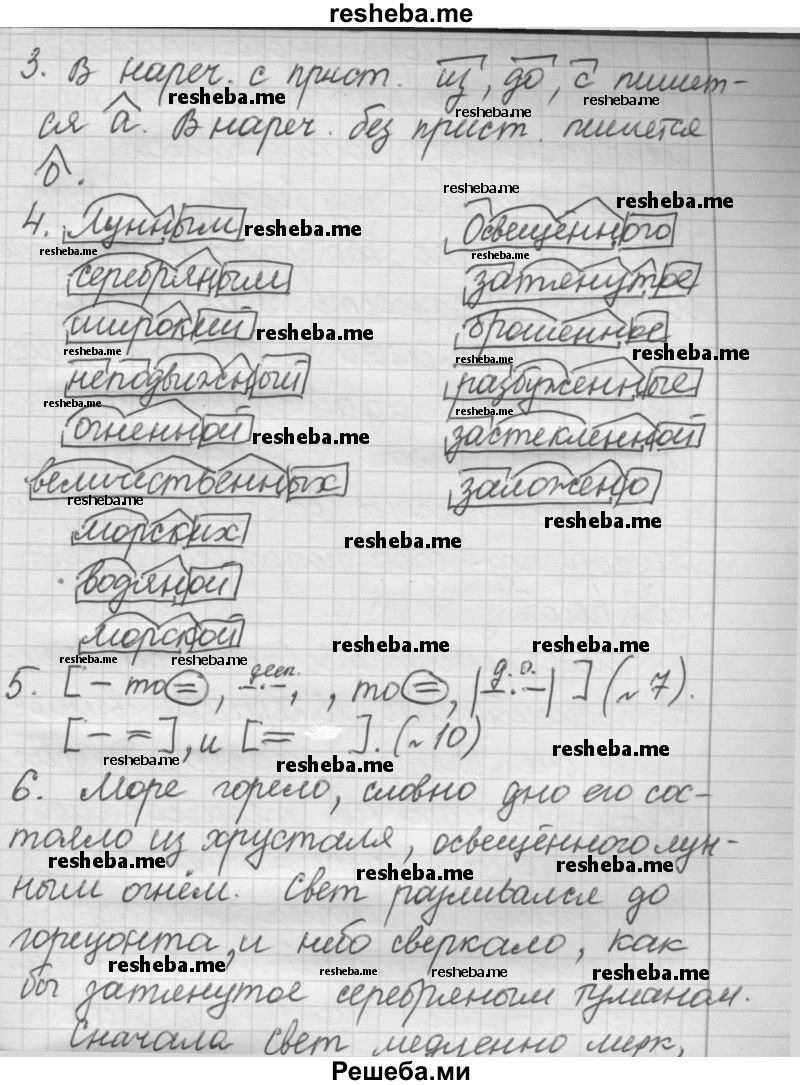 resheba.me
3. В нареч. с прист. из, до, с пишет-
resheba.me resheba.me
ся а. В нареч. без прист. пишется
resheba.me
о.
resheba.me resheba.me
4. Лунным resheba.me Освещённого
resheba.me
серебряным затянутое
широкий resheba.me брошенное
resheba.me resheba.me resheba.me
неподвижный разбуженные
resheba.me resheba.me
огненной resheba.me застекленной
величественных заложено
resheba.me resheba.me
морских resheba.me
водяной
морской resheba.me resheba.me
resheba.me resheba.me
5. [– то =, деепр., , то =, |д. о.| ] (~ 7).
[– =], и [= ]. (~ 10) resheba.me
resheba.me resheba.me
6. Море горело, словно дно его сос-
тояло из хрусталя, освещённого лун-
resheba.me resheba.me resheba.me
ным огнём. Свет разливался до
горизонта, и небо сверкало, как
resheba.me resheba.me resheba.me resheba.me
бы затянутое серебряным туманом.
Сначала свет медленно мерк,
Решеба.ми